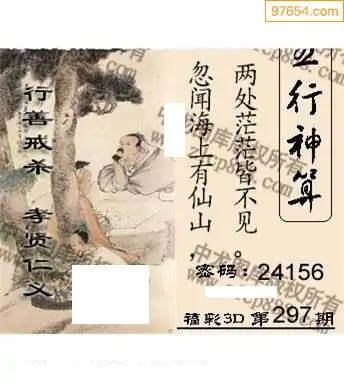 97654.com
五行神算
两处茫茫皆不见。
忽闻海上有仙山,
行善戒杀 孝贤仁义
密码:24156
福彩3D 第297期
版权所有